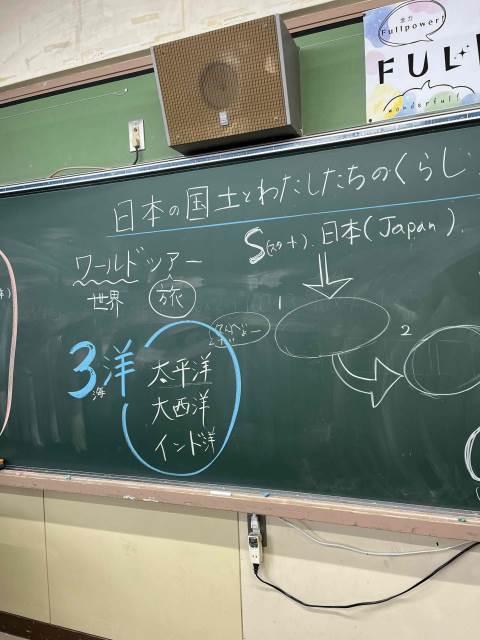 全力
Fullpower!
FULL
wonderful!
日本の国土とわたしたちのくらし
S(スタート). 日本(Japan).
ワールドツアー
世界 旅
1
2
3洋
海
太平洋
大西洋
インド洋